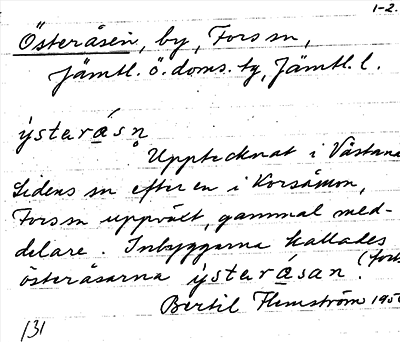 1-2.
Österåsen, by, Fors sn,
Jämtl. ö. doms. tg, Jämtl. l.
ýsterásn̥
Upptecknat i Västana
Sidens sn efter en i Korsåmon,
Fors sn uppväxt, gammal med-
delare. Inbyggarna kallades
österåsarna ýsterásan. (forts
Bertil Flemström 195
131